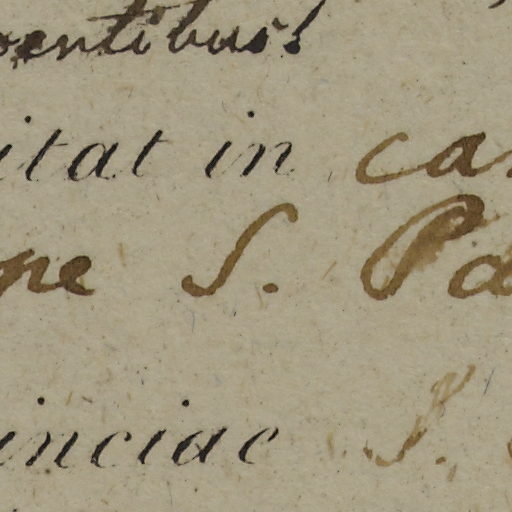 oentibus.
itat in ca
ne S. Pa
inciae S.